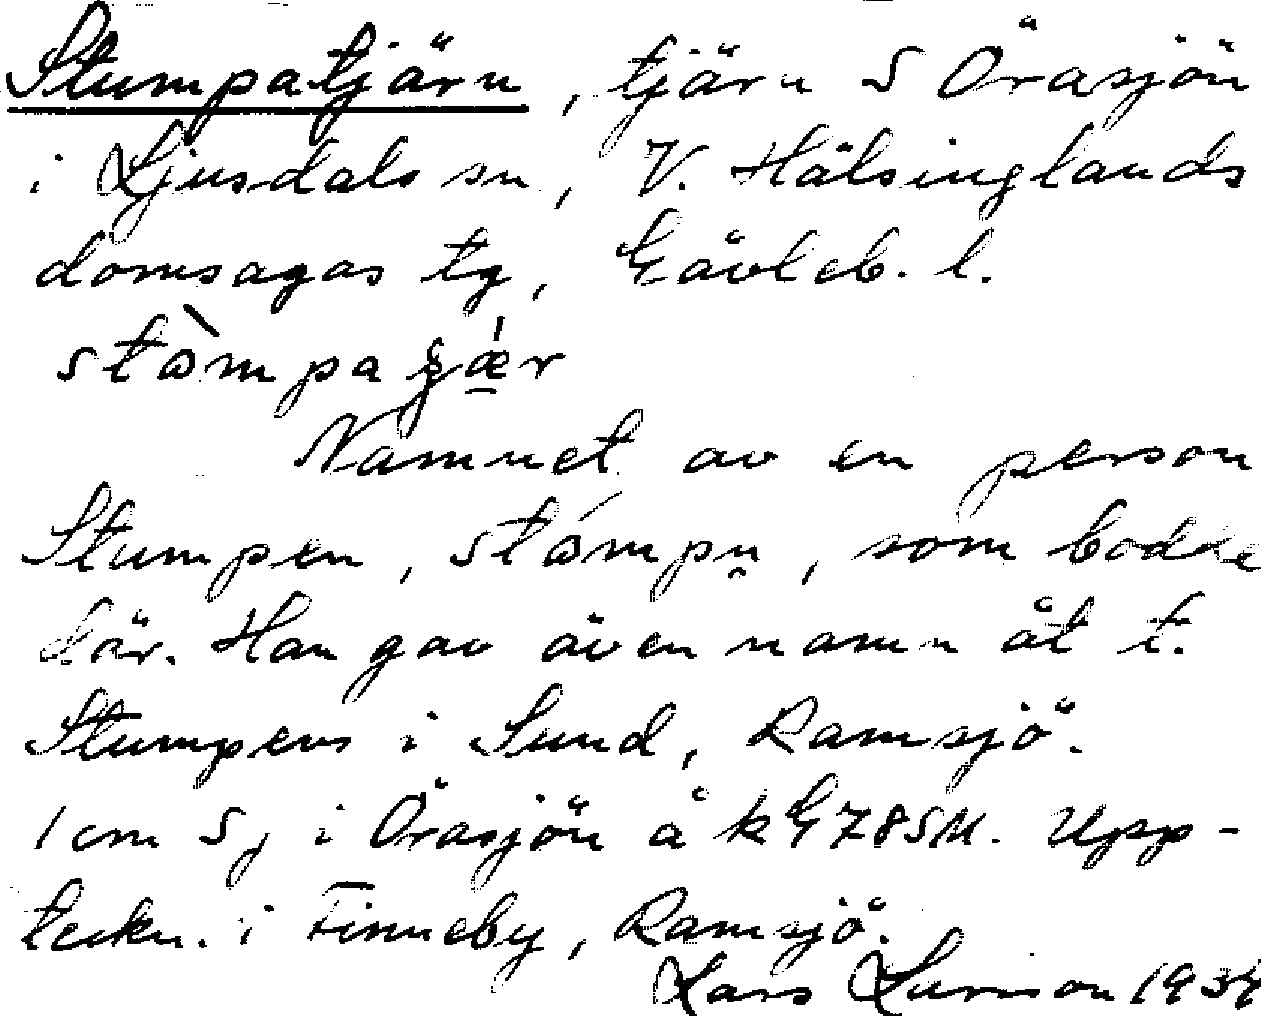 Stumpatjärn, tjärn S Örasjön
i Ljusdals sn, V. Hälsinglands
domsagas tg, Gävleb. l.
Namnet av en person
Stumpen, som bodde
där. Han gav även namn åt t.
Stumpens i Sund, Ramsjö.
1 cm S j i Örasjön å k G785M. Upp-
teckn. i Finneby, Ramsjö.
Lars 1934